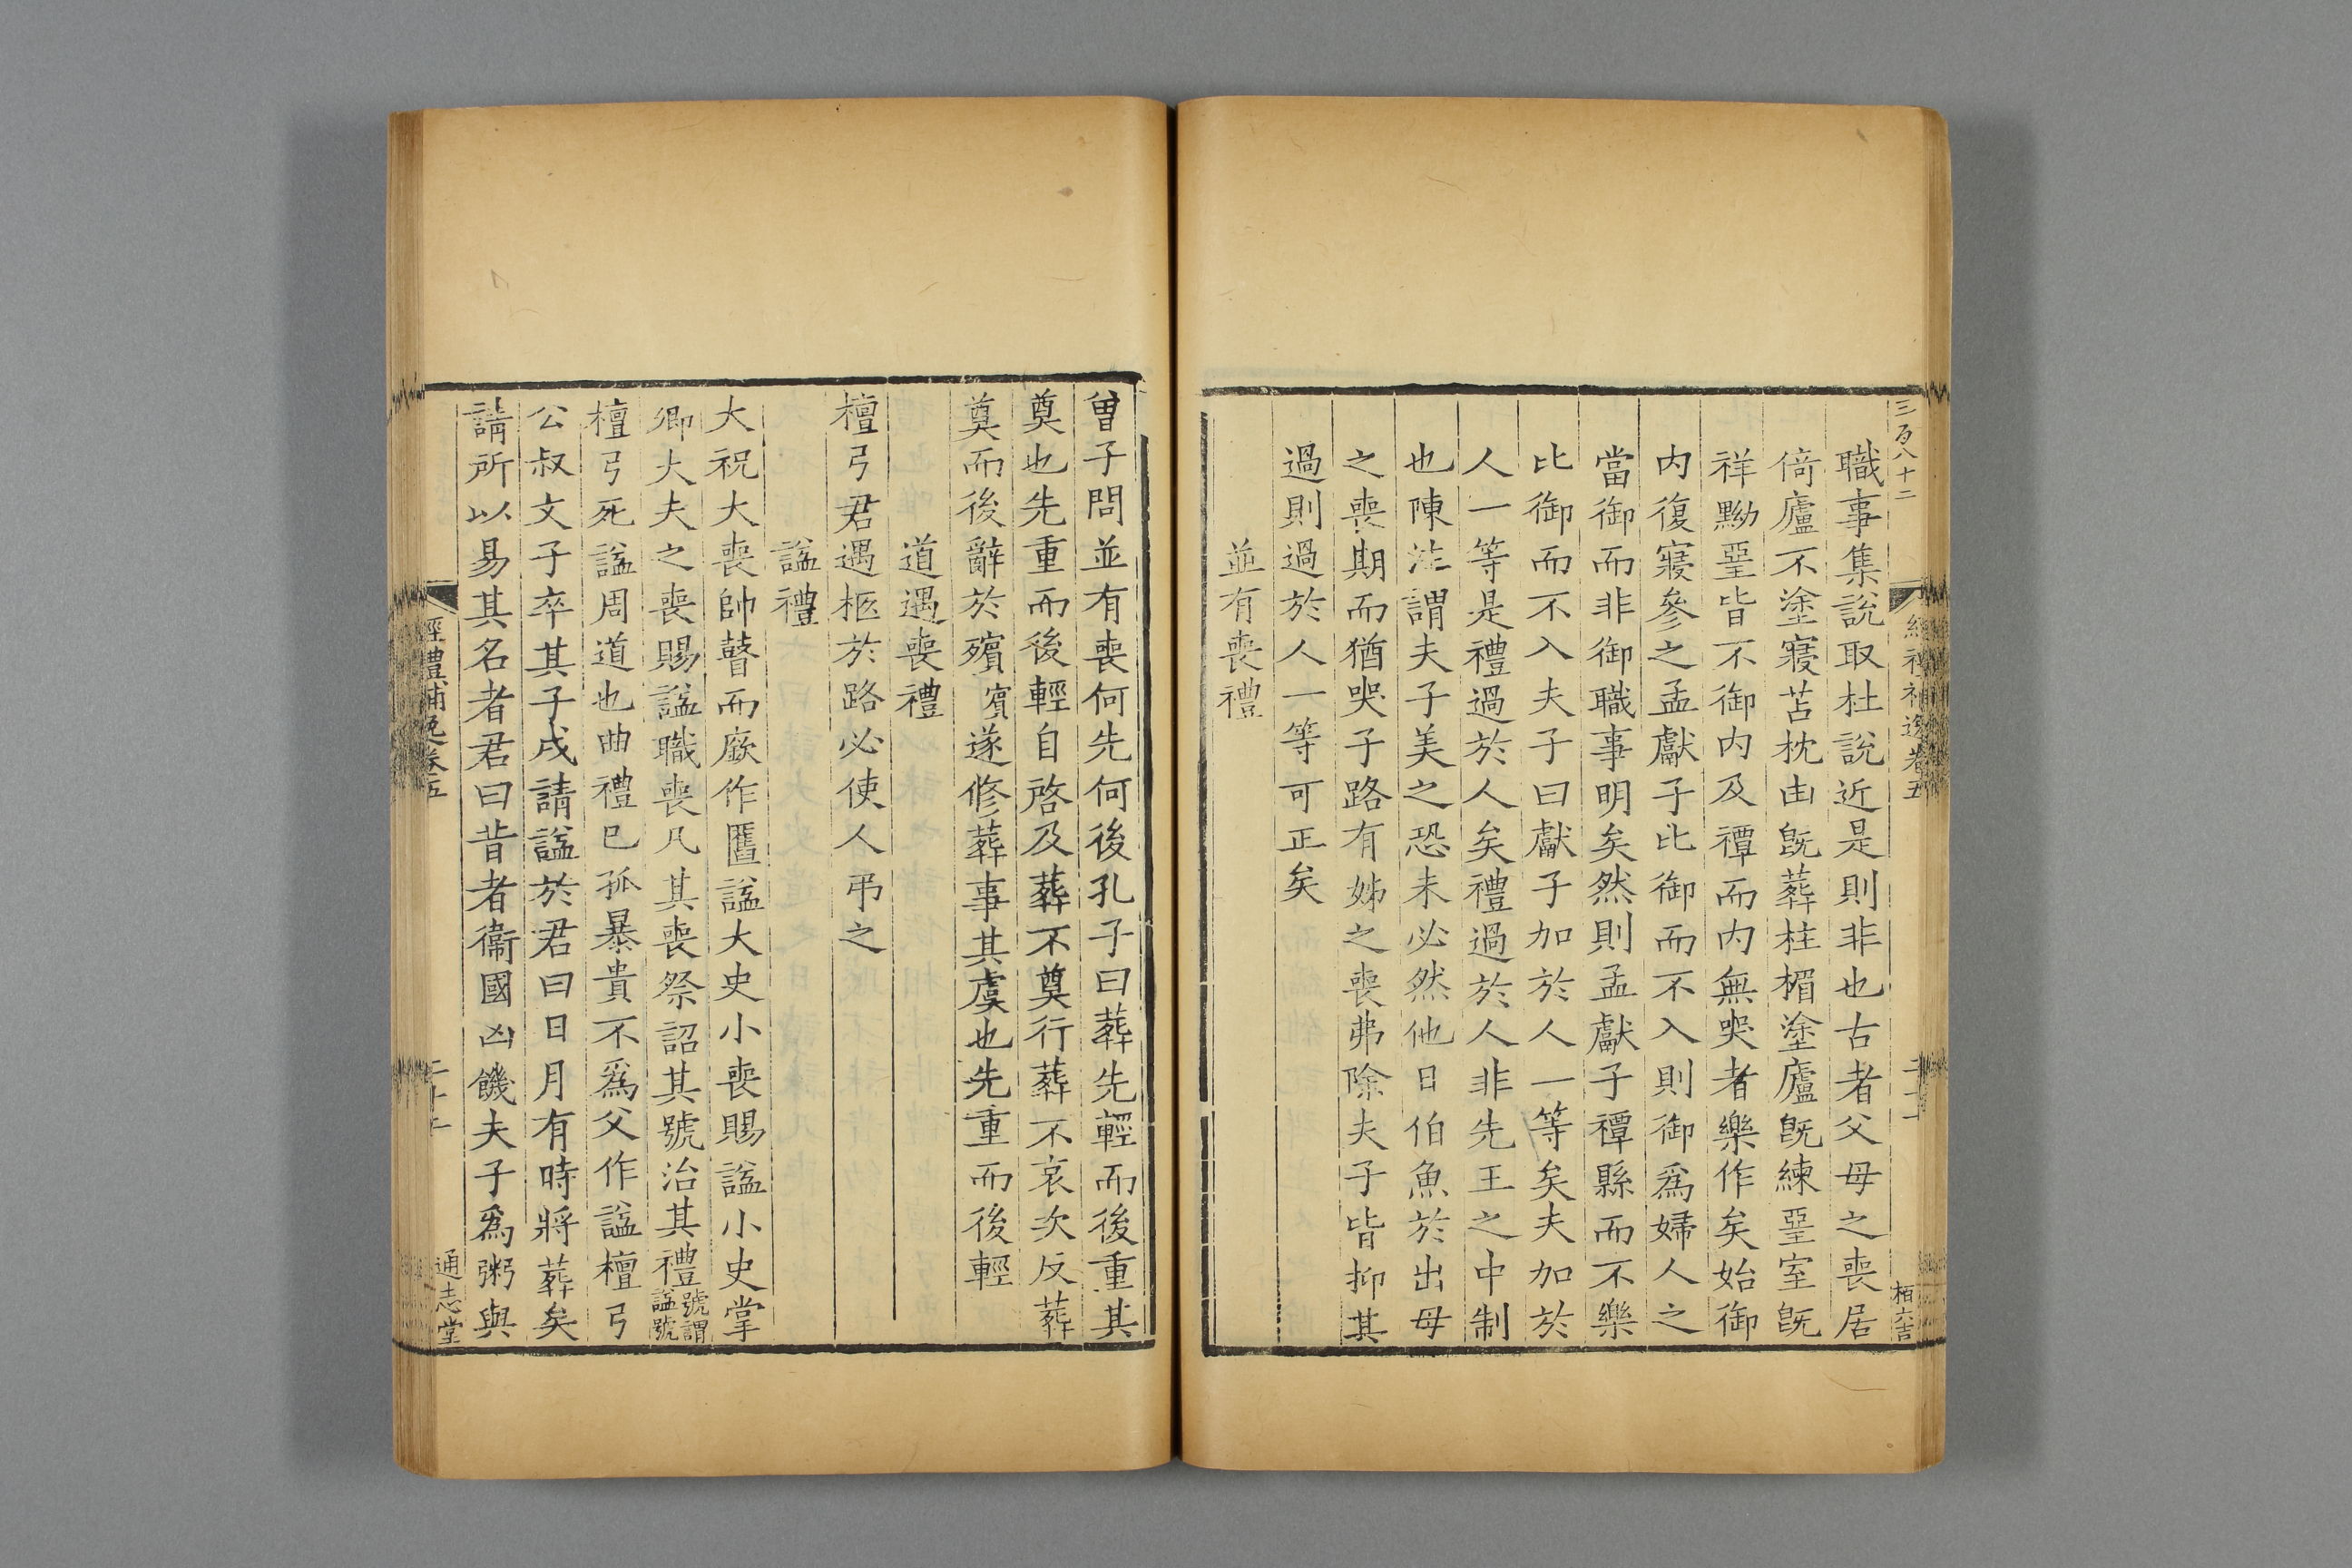 三百八十二
職事集説取杜説近是則非也古者父母之喪居
倚廬不塗寢苫枕凷旣葬柱楣塗廬旣練堊室旣
祥黝堊皆不御内及禫而内無哭者樂作矣始御
内復寢參之孟獻子比御而不入則御爲婦人之
當御而非御職事明矣然則孟獻子禫縣而不樂
比御而不入夫子曰獻子加於人一等矣夫加於
人一等是禮過於人矣禮過於人非先王之中制
也陳注謂夫子美之恐未必然他日伯魚於出母
之喪期而猶哭子路有姊之喪弗除夫子皆抑其
過則過於人一等可正矣
並有喪禮
曾子問並有喪何先何後孔子曰葬先輕而後重其
奠也先重而後輕自啓及葬不奠行葬不哀次反葬
奠而後辭於殯賓遂修葬事其虞也先重而後輕
道遇喪禮
檀弓君遇柩於路必使人弔之
諡禮
大祝大喪帥瞽而廞作匶諡大史小喪賜諡小史掌
卿大夫之喪賜諡職喪凡其喪祭詔其號治其禮號謂諡號
檀弓死諡周道也曲禮已孤暴貴不爲父作諡檀弓
公叔文子卒其子戍請諡於君曰日月有時將葬矣
請所以易其名者君曰昔者衞國凶饑夫子爲粥與
經禮補逸卷五
通志堂